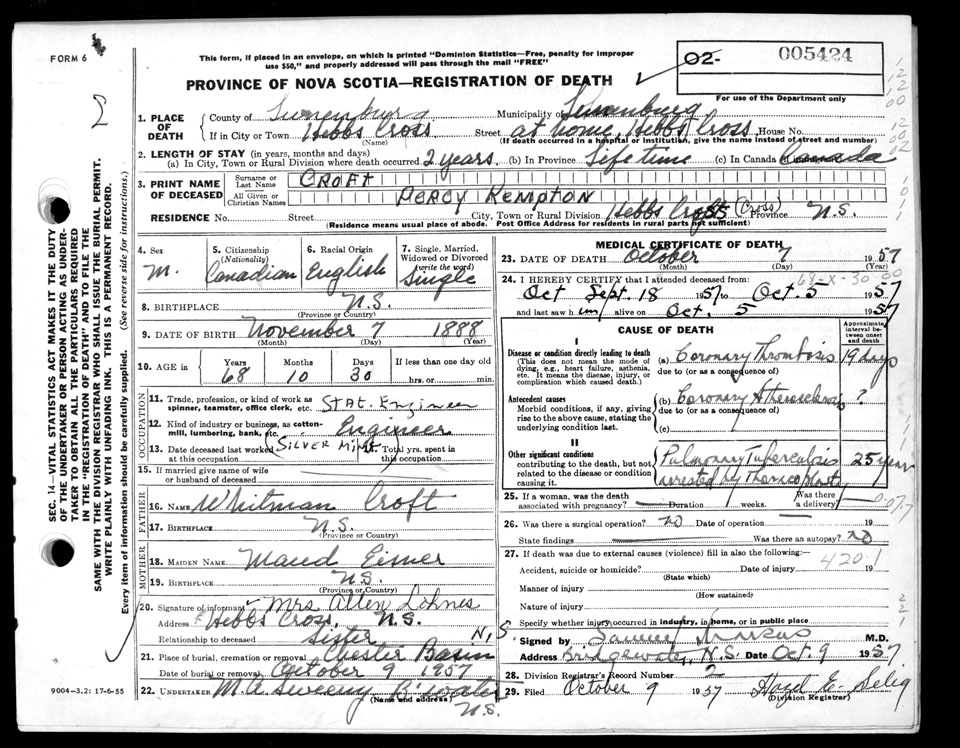 FORM 6
This form, if placed in an envelope, on which is printed "Dominion Statistics—Free, penalty for improper
use $50," and properly addressed will pass through the mail "FREE"
PROVINCE OF NOVA SCOTIA—REGISTRATION OF DEATH
02-
005424
For use of the Department only
1. PLACE OF DEATH
County of Lunenburg Municipality of Lunenburg
If in City or Town Hebbs Cross Street at home, Hebbs Cross House No.
(Name) (If death occurred in a hospital or institution, give the name instead of street and number)
2. LENGTH OF STAY (in years, months and days)
(a) In City, Town or Rural Division where death occurred 2 years (b) In Province Life time (c) In Canada Canada
3. PRINT NAME OF DECEASED
Surname or Last Name CROFT
All Given or Christian Names PERCY KEMPTON
RESIDENCE No. Street City, Town or Rural Division Hebbs (Cross) Province N.S.
(Residence means usual place of abode. Post Office Address for residents in rural parts not sufficient)
4. Sex M.
5. Citizenship (Nationality) Canadian
6. Racial Origin English
7. Single, Married, Widowed or Divorced (write the word) Single
8. BIRTHPLACE N.S.
(Province or Country)
9. DATE OF BIRTH November 7 1888
(Month) (Day) (Year)
10. AGE in Years 68 Months 10 Days 30 If less than one day old
hrs. or min.
OCCUPATION
11. Trade, profession, or kind of work as
spinner, teamster, office clerk, etc. STAT. Engineer
12. Kind of industry or business, as cotton-
mill, lumbering, bank, etc. Engineer
13. Date deceased last worked at this occupation SILVER MINE 14. Total yrs. spent in this occupation
15. If married give name of wife
or husband of deceased
FATHER
16. NAME Whitman Croft
17. BIRTHPLACE N.S.
(Province or Country)
MOTHER
18. MAIDEN NAME Maud
19. BIRTHPLACE N.S.
(Province or Country)
20. Signature of informant Mrs Allen Lohnes
Address Hebbs Cross, N.S.
Relationship to deceased Sister N.S.
21. Place of burial, cremation or removal Chester Basin
Date of burial or removal October 9 1957
22. UNDERTAKER M.A. Sweeny
(Name and address)
N.S.
9004-3.2: 17-6-55
SEC. 14—VITAL STATISTICS ACT MAKES IT THE DUTY
OF THE UNDERTAKER OR PERSON ACTING AS UNDER-
TAKER TO OBTAIN ALL THE PARTICULARS REQUIRED
IN THE "REGISTRATION OF DEATH" AND TO FILE THE
SAME WITH THE DIVISION REGISTRAR WHO SHALL ISSUE THE BURIAL PERMIT.
WRITE PLAINLY WITH UNFADING INK. THIS IS A PERMANENT RECORD.
Every item of information should be carefully supplied. (See reverse side for instructions.)
MEDICAL CERTIFICATE OF DEATH
23. DATE OF DEATH October 7 1957
(Month) (Day) (Year)
24. I HEREBY CERTIFY that I attended deceased from:
68-X-30
Oct Sept. 18 1957 to Oct. 5 1957
and last saw him alive on Oct. 5 1957
CAUSE OF DEATH
Approximate interval between onset and death
I
Disease or condition directly leading to death
(This does not mean the mode of
dying, e.g., heart failure, asthenia,
etc. It means the disease, injury, or
complication which caused death.)
(a) Coronary Thrombosis 19 days
due to (or as a consequence of)
Antecedent causes
Morbid conditions, if any, giving
rise to the above cause, stating the
underlying condition last.
(b) Coronary Atherosclerosis ?
due to (or as a consequence of)
(c)
II
Other significant conditions
contributing to the death, but not
related to the disease or condition
causing it.
Pulmonary Tuberculosis 25 years
arrested by Thoracoplasty
25. If a woman, was the death
associated with pregnancy? Duration weeks. Was there a delivery?
007
26. Was there a surgical operation? no Date of operation 19
State findings Was there an autopsy? no
27. If death was due to external causes (violence) fill in also the following:—
420.1
Accident, suicide or homicide? Date of injury 19
(State which)
Manner of injury
(How sustained)
Nature of injury
Specify whether injury occurred in industry, in home, or in public place
Signed by Samuel Marcus M.D.
Address Bridgewater, N.S. Date Oct. 9 1957
28. Division Registrar's Record Number 2
29. Filed October 9 1957 E. Selig
(Division Registrar)